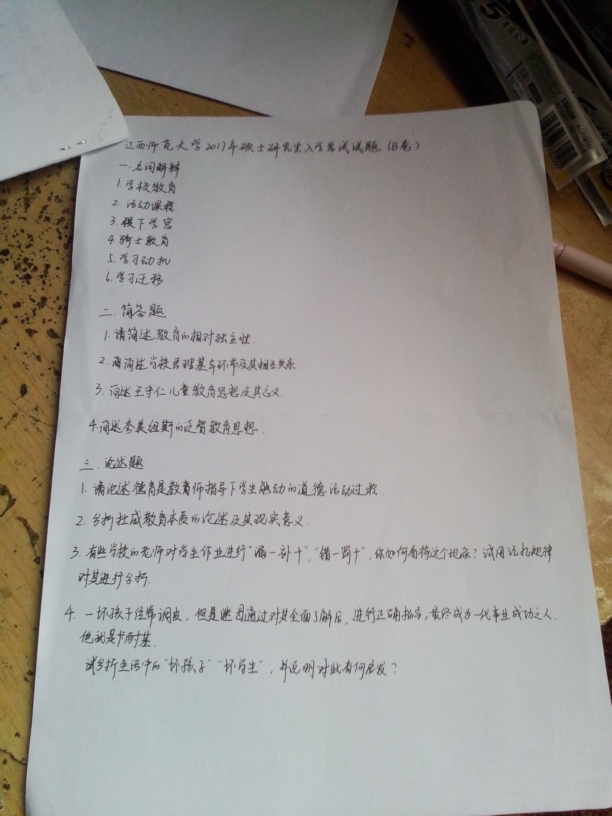 江西师范大学2017年硕士研究生入学考试试题(B卷)
一.名词解释
1.学校教育
2.活动课程
3.稷下学宫
4.骑士教育
5.学习动机
6.学习迁移
二.简答题
1.请简述教育的相对独立性.
2.简述学校管理基本环节及其相互关系.
3.简述王守仁儿童教育思想及其意义.
4.简述夸美纽斯的泛智教育思想.
三.论述题
1.请论述德育是教育师指导下学生能动的道德活动过程.
2.分析杜威教育本质的论述及其现实意义.
3.有些学校的老师对学生作业进行"漏一补十","错一罚十",你如何看待这个现象?试用记忆规律
对其进行分析.
4.一坏孩子经常调皮,但是继母通过对其全面了解后,进行正确指导,最终成为一代事业成功之人.
他就是卡耐基.
试分析生活中的"坏孩子""坏学生",并说明对此有何启发?